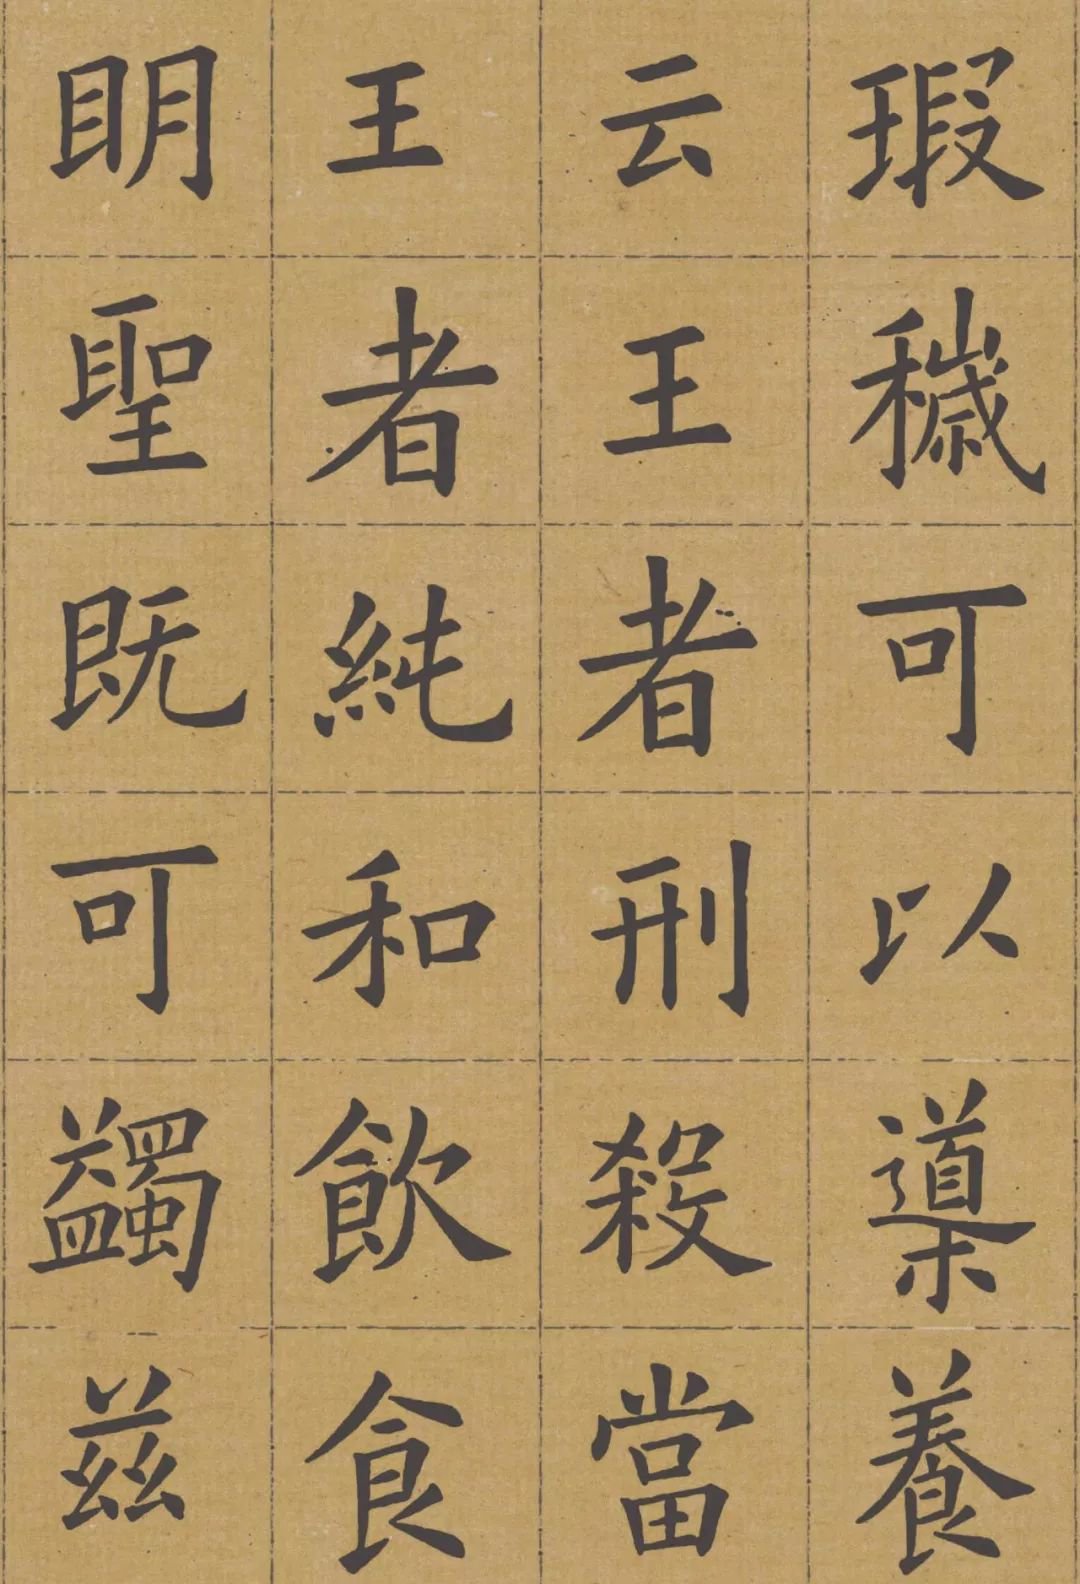 瑕穢可以導養
云王者刑殺當
王者純和飲食
眀聖既可蠲兹